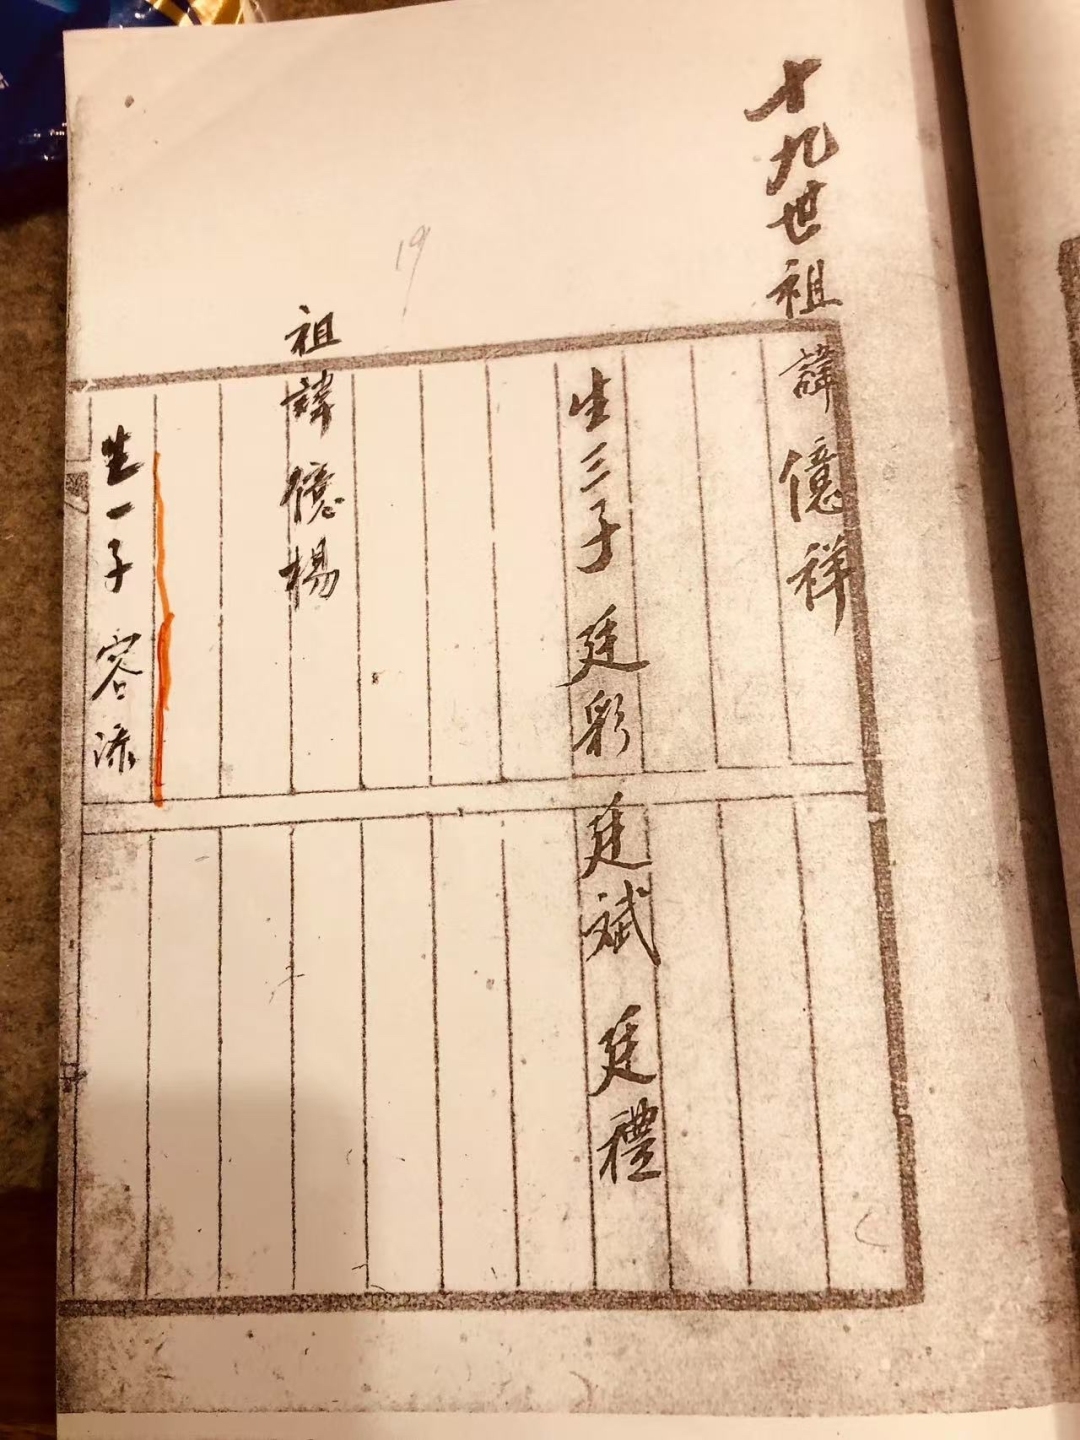 十九世祖諱億祥
生三子 廷彩 廷斌 廷禮
19
祖諱億楊
生一子 容添